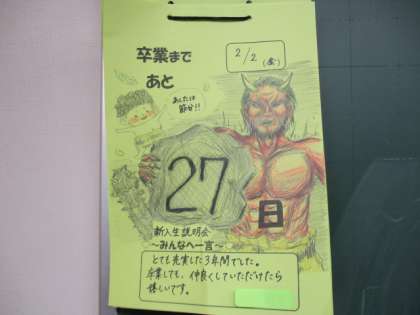 卒業まで
あと
2/2(金)
あしたは
節分!!
27
日
新入生説明会
～みんなへ一言～
とても充実した3年間でした。
卒業しても、仲良くしていただけたら
嬉しいです。